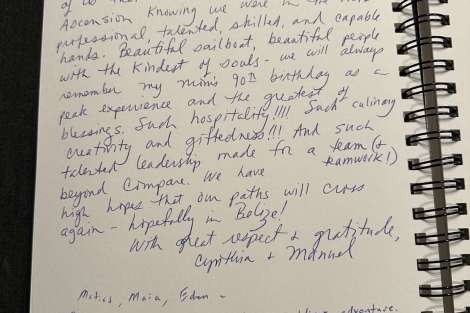 of us that
Ascension knowing we were in the most
professional, talented, skilled, and capable
hands. Beautiful sailboat, beautiful people
with the kindest of souls - we will always
remember my mom's 90th birthday as a
peak experience and the greatest of
blessings. Such hospitality!!!! Such culinary
creativity and giftedness!!! And such
talented leadership made for a team (&
teamwork!)
beyond compare. We have
high hopes that our paths will cross
again - hopefully in Belize!
With great respect & gratitude,
Cynthia & Manuel
Maia, Eden -
adventure.